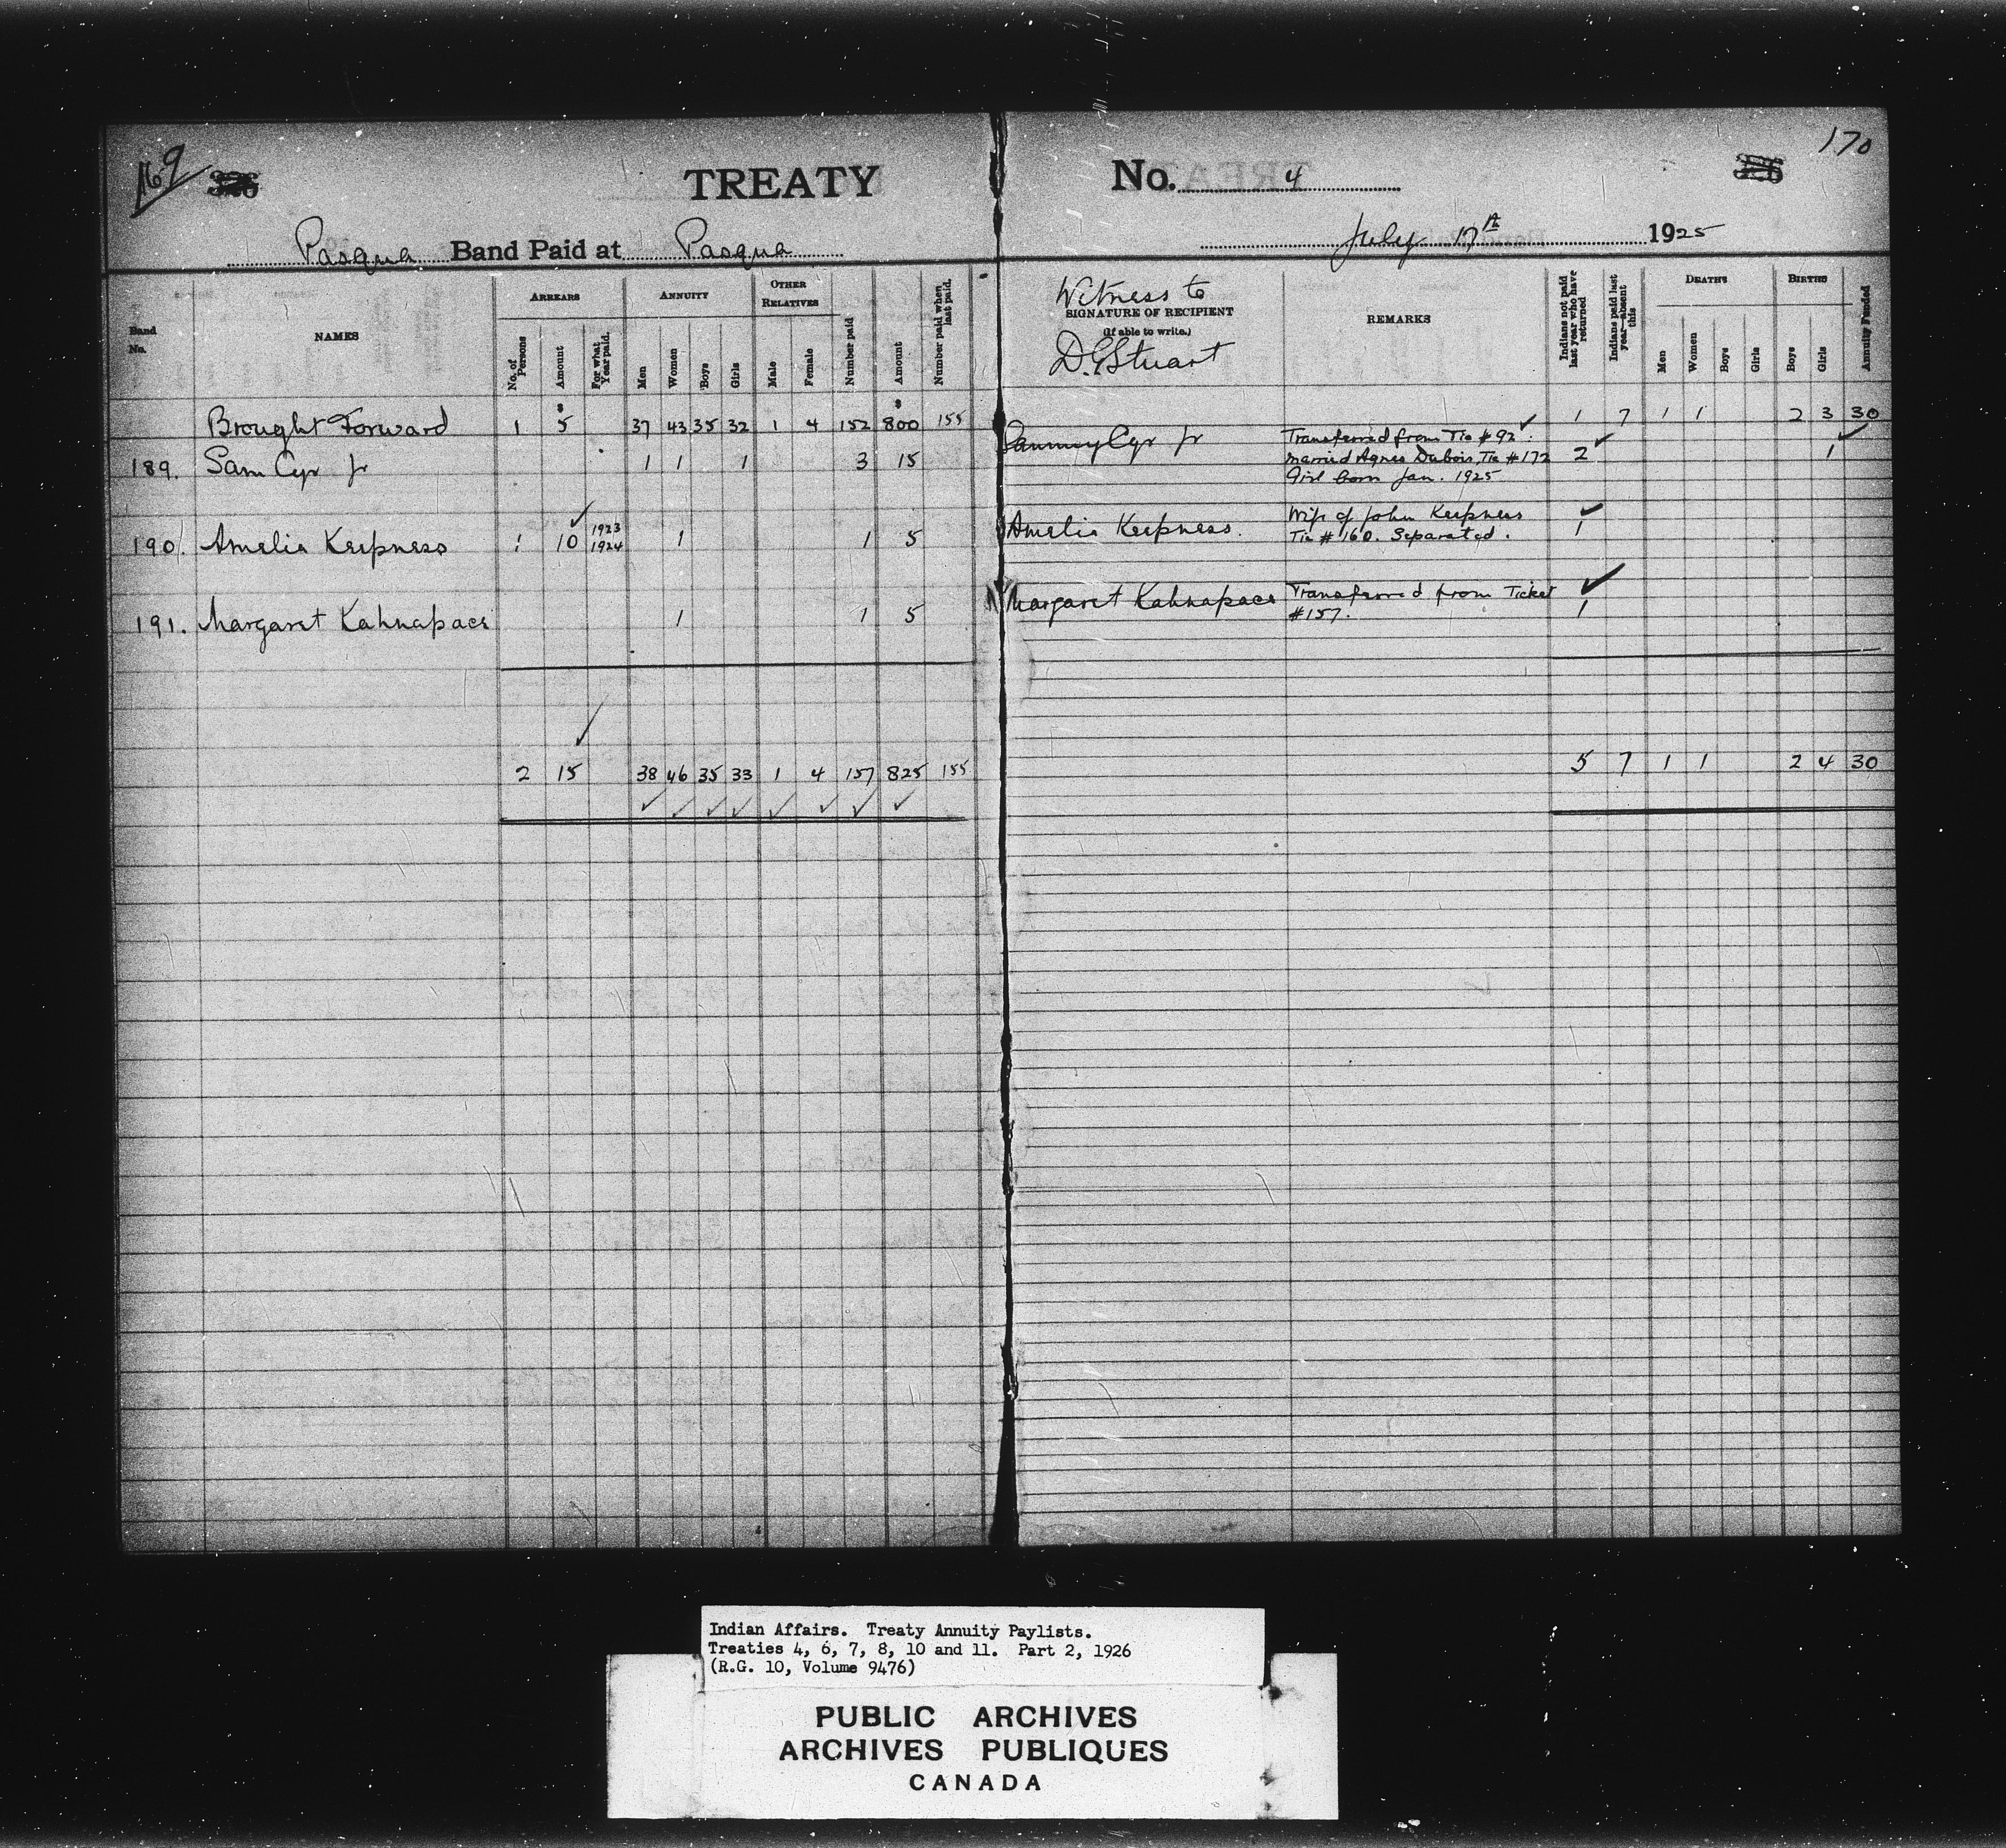 169
170
TREATY No. 4
Pasqua Band Paid at Pasqua July 17th 1925
Band No.
NAMES
ARREARS
No. of Persons
Amount
For what Year paid.
ANNUITY
Men
Women
Boys
Girls
OTHER RELATIVES
Male
Female
Number paid
Amount
Number paid when last paid.
Witness to
SIGNATURE OF RECIPIENT
(If able to write.)
D. G. Stuart
REMARKS
Indians not paid last year who have returned
Indians paid last year—absent this
DEATHS
Men
Women
Boys
Girls
BIRTHS
Boys
Girls
Annuity Funded
Brought Forward 1 $ 5 37 43 35 32 1 4 152 $ 800 155 1 7 1 1 2 3 30
189. Sam Cyr Jr 1 1 1 3 15 Sammy Cyr Jr Transferred from Tic # 92.
married Agnes Dubois, Tic #172 2 1
Girl born Jan. 1925
190. Amelia Keepness 1 10 1923 1924 1 1 5 Amelia Keepness. Wife of John Keepness
Tic # 160. Separated. 1
191. Margaret Kahnapace 1 1 5 Margaret Kahnapace Transferred from Ticket
#157. 1
2 15 38 46 35 33 1 4 157 825 155 5 7 1 1 2 4 30
Indian Affairs. Treaty Annuity Paylists.
Treaties 4, 6, 7, 8, 10 and 11. Part 2, 1926
(R.G. 10, Volume 9476)
PUBLIC ARCHIVES
ARCHIVES PUBLIQUES
CANADA